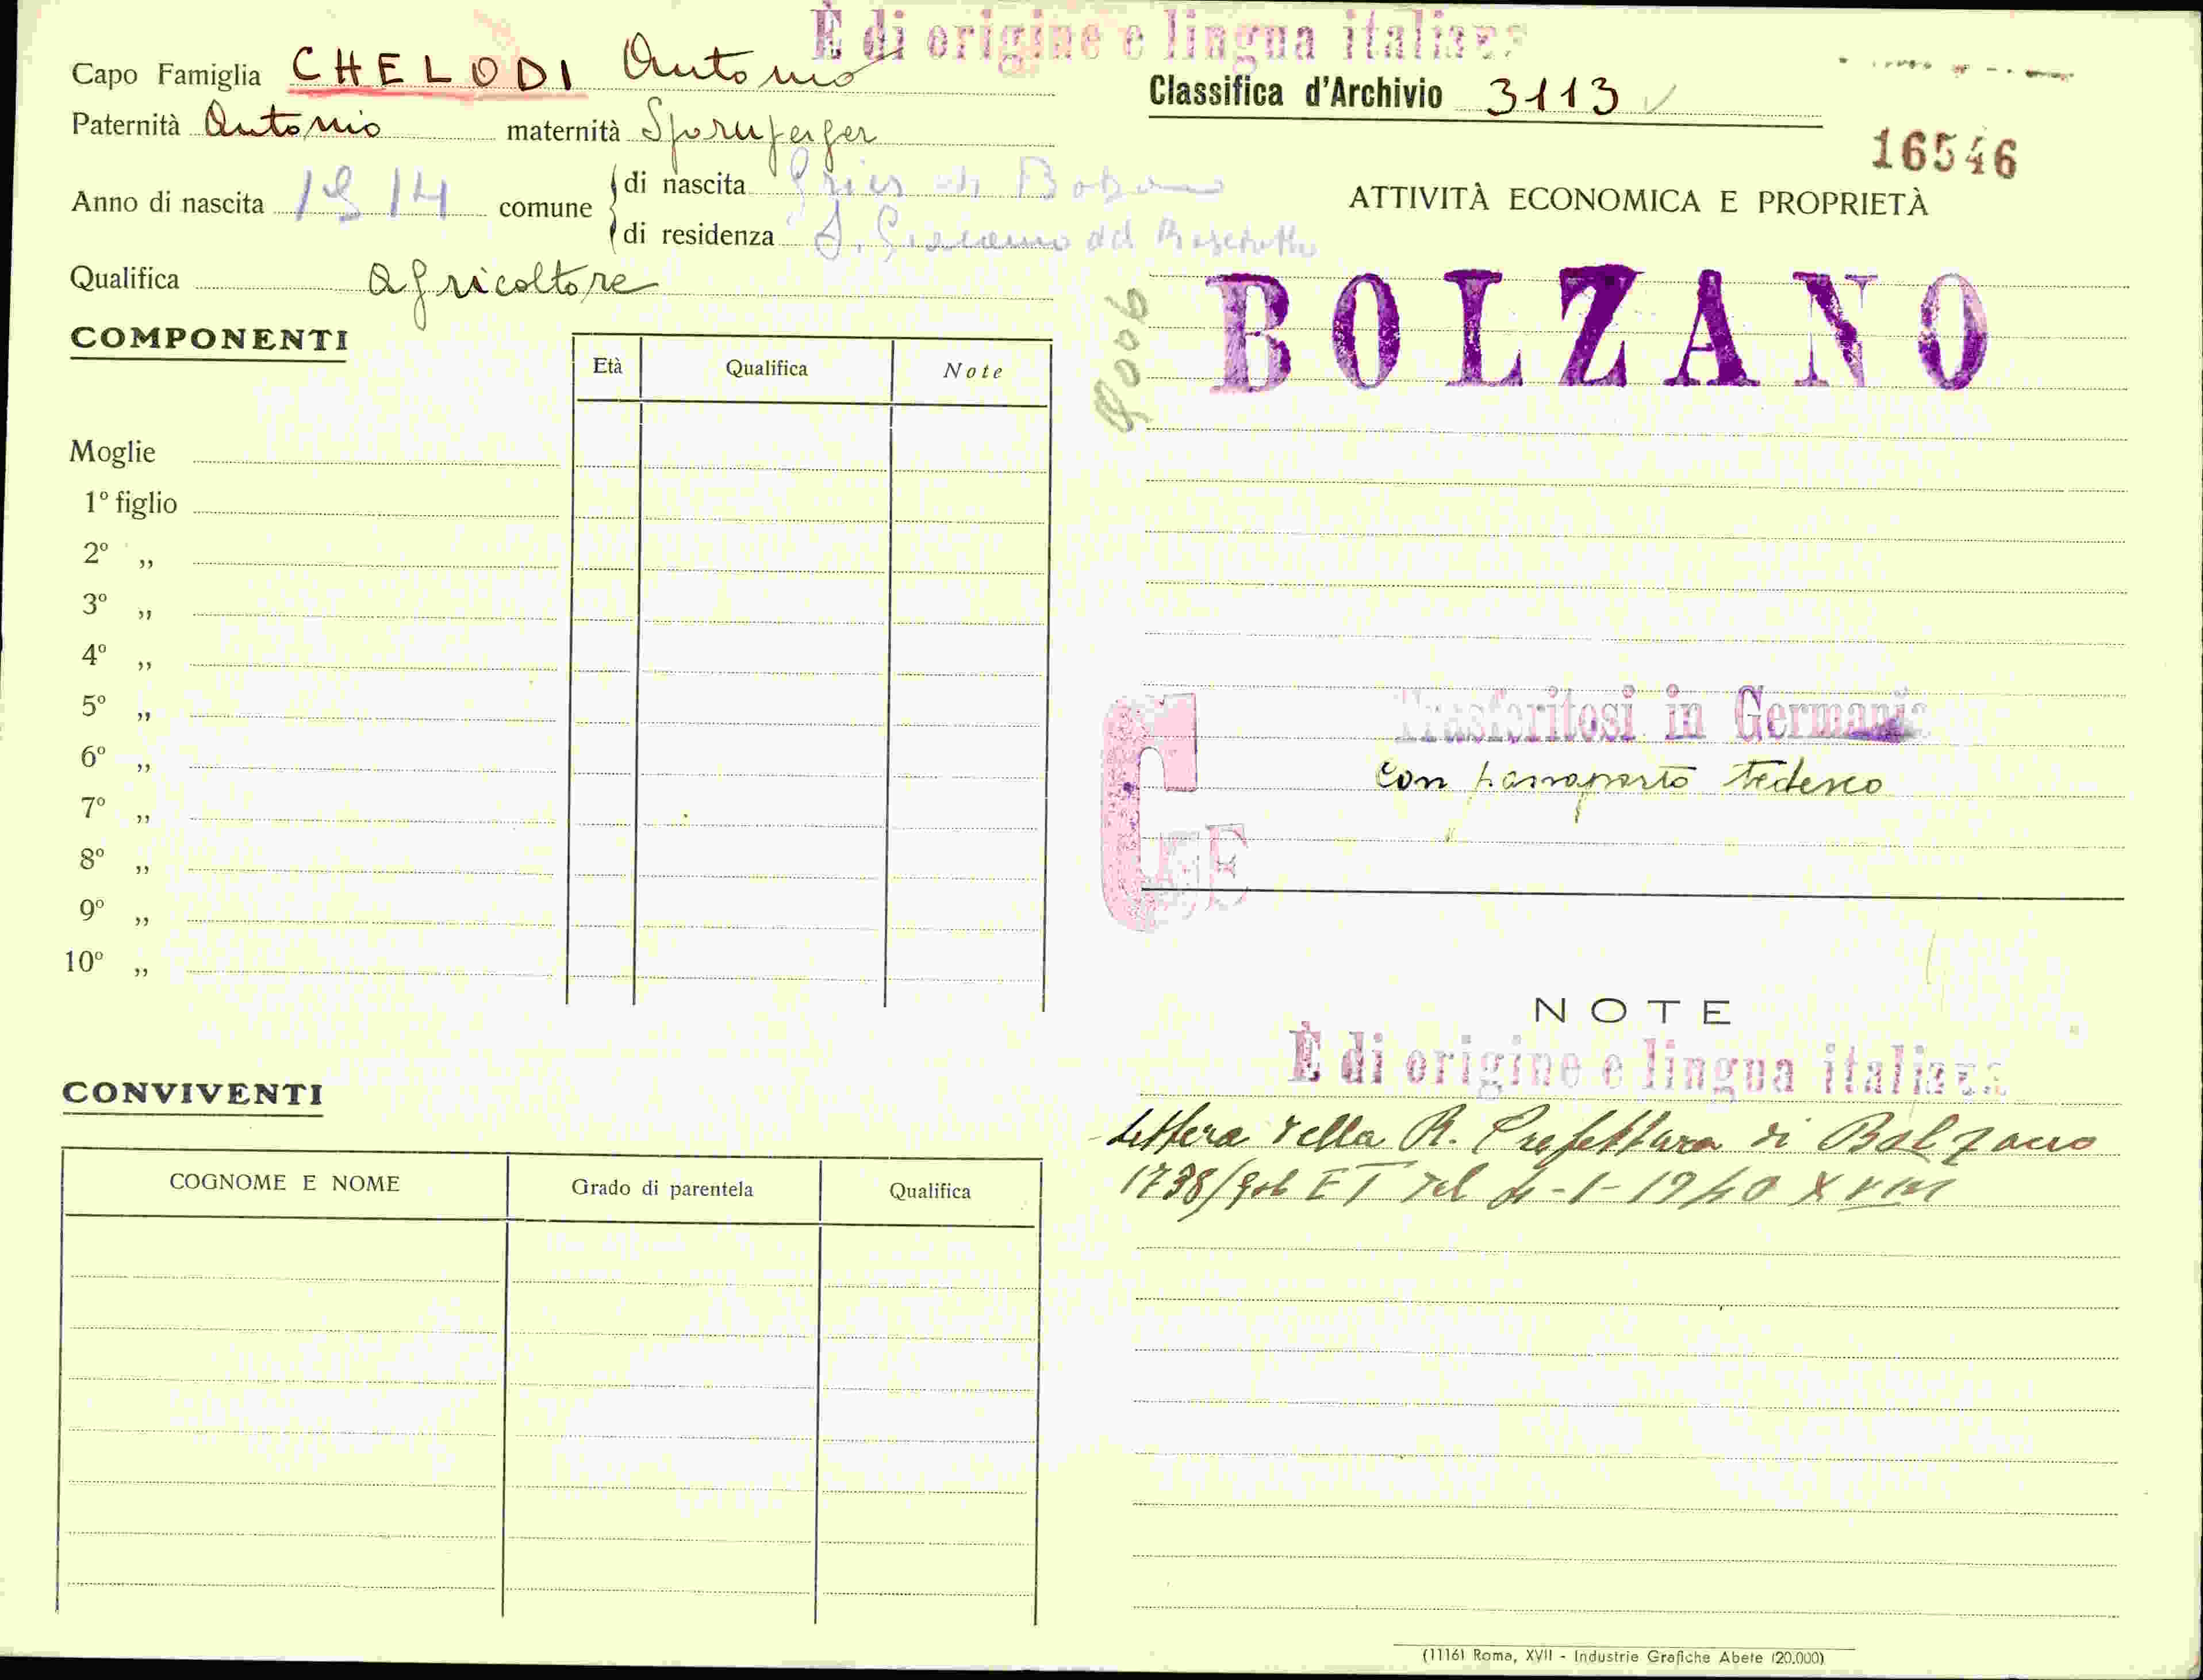 È di origine e lingua italiana
Capo Famiglia CHELODI Antonio
Paternità Antonio maternità
Anno di nascita 1914 comune
di nascita Gries di Bolzano
di residenza S. Giacomo del
Qualifica agricoltore
COMPONENTI
Età Qualifica Note
Moglie
1º figlio
2º „
3º „
4º „
5º „
6º „
7º „
8º „
9º „
10º „
CONVIVENTI
COGNOME E NOME Grado di parentela Qualifica
Classifica d'Archivio 3113
16546
ATTIVITÀ ECONOMICA E PROPRIETÀ
BOLZANO
Trasferitosi in Germania
con passaporto tedesco
NOTE
È di origine e lingua italiana
Lettera della R. Prefettura di Bolzano
1738/Gab ET del 4-1-1940 XVIII
(1116) Roma, XVII - Industrie Grafiche Abete (20.000)